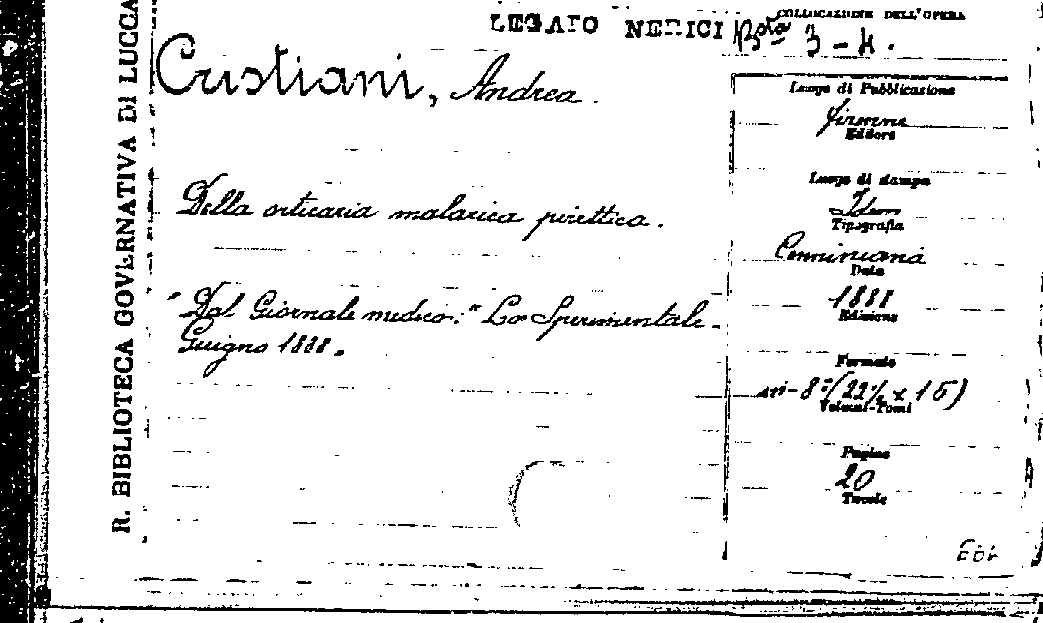 R. BIBLIOTECA GOVERNATIVA DI LUCCA
LEGATO NERICI
COLLOCAZIONE DELL'OPERA
Bta 3-4.
Cristiani, Andrea.
Della orticaria malarica pirettica.
"Dal Giornale medico: "Lo Sperimentale-
Giugno 1888.
Luogo di Pubblicazione
Firenze
Editore
Luogo di stampa
Idem
Tipografia
Cenniniana
Data
1888
Edizione
Formato
in-8º (22½ x 15)
Volumi-Tomi
Pagine
20
Tavole